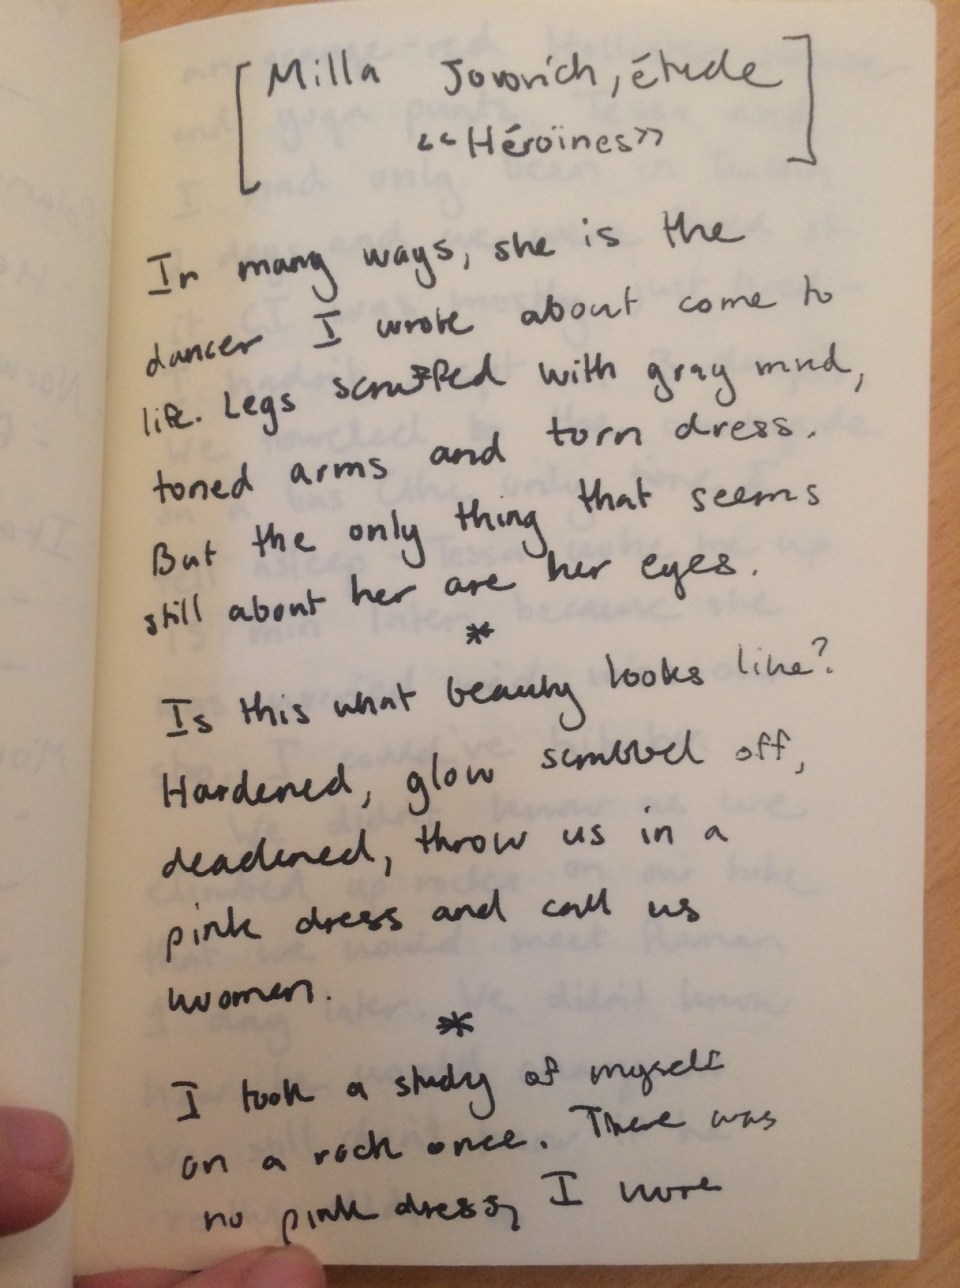 [Milla Jovovich, étude
"Héroïnes"]
In many ways, she is the
dancer I wrote about come to
life. Legs scruffed with gray mud,
toned arms and torn dress.
But the only thing that seems
still about her are her eyes.
*
Is this what beauty looks like?
Hardened, glow scrubbed off,
deadened, throw us in a
pink dress and call us
women.
*
I took a study of myself
on a rock once. There was
no pink dress, I wore